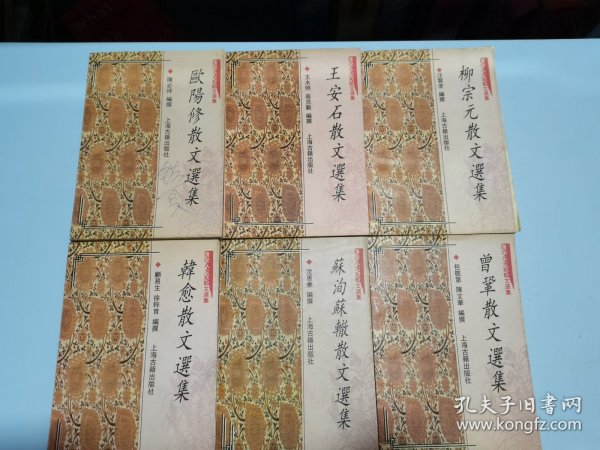 歐陽修散文選集
◆ 陳必祥 編撰
上海古籍出版社
王安石散文選集
上海古籍出版社
柳宗元散文選集
上海古籍出版社
韓愈散文選集
◆ 顧易生 徐粹育 編撰
上海古籍出版社
蘇洵蘇轍散文選集
◆ 沈惠樂 編撰
上海古籍出版社
曾鞏散文選集
◆ 包敬第 陳文華 編撰
上海古籍出版社
孔夫子旧书网
www.kongfz.com